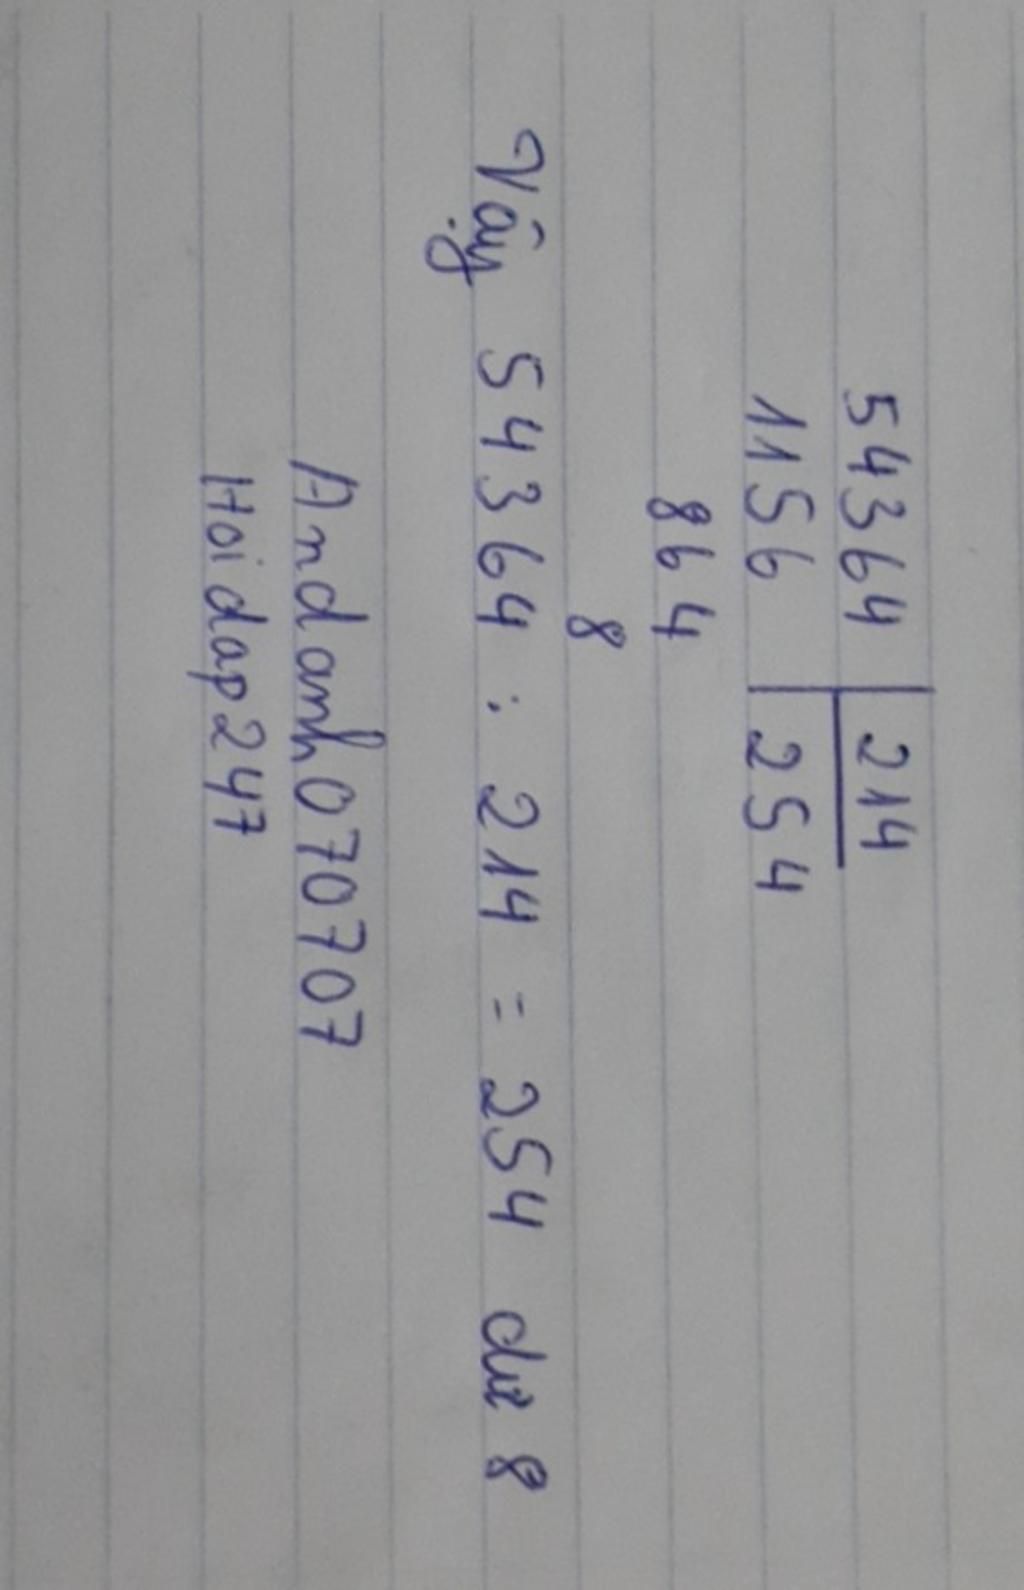 54364 | 214
1156 | 254
864
8
Vậy 54364 : 214 = 254 dư 8
Andanh070707
Hoidap247